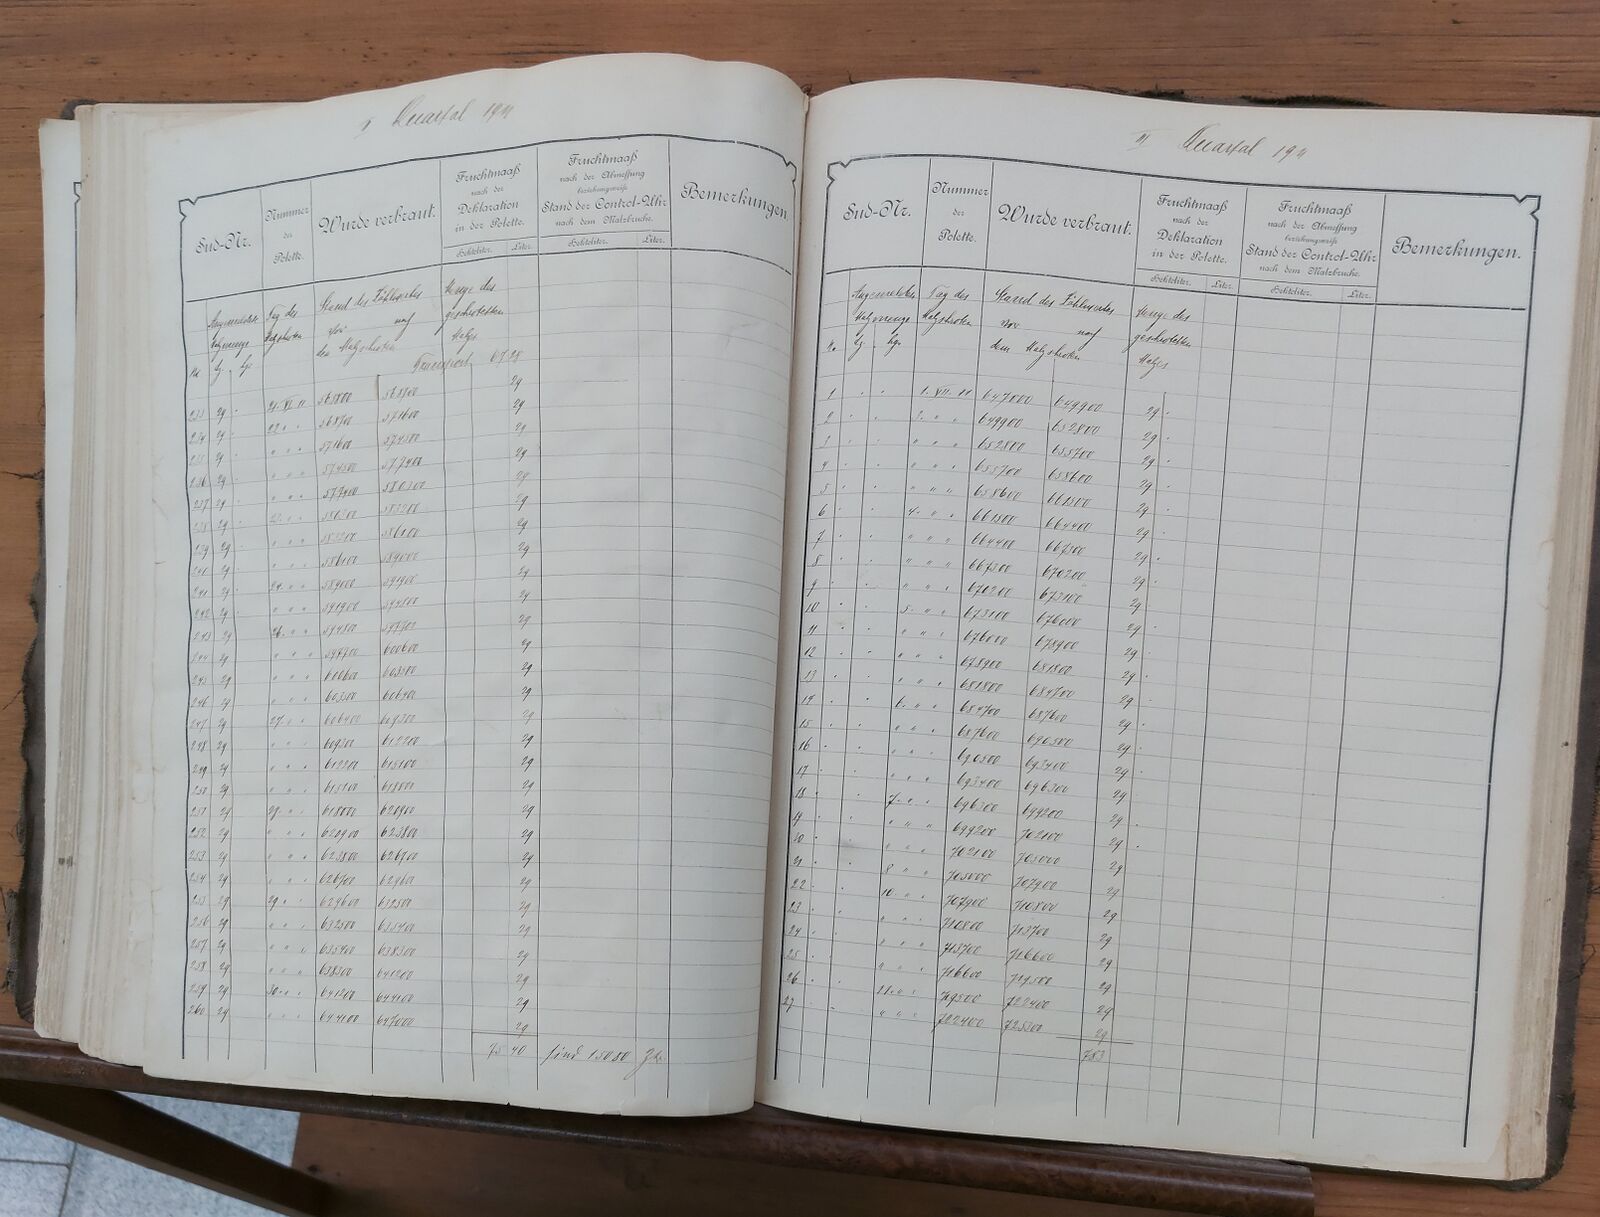 II Quartal 1911
Sud-Nr.
Nummer
der
Polette.
Wurde verbraut.
Fruchtmaaß
nach der
Deklaration
in der Polette.
Hektoliter. Liter.
Fruchtmaaß
nach der Abmessung
beziehungsweise
Stand der Control-Uhr
nach dem Malzbruche.
Hektoliter. Liter.
Bemerkungen.
Angemeldete
Malzmenge
Tag des
Malzschrotens
Stand des Zählwerkes
vor nach
dem Malzschroten
Menge des
geschrotetten
Malzes
Transport 6728
233 29 21. VI 11 565800 568700 29
234 29 22. " " 568700 571600 29
235 29 " " " 571600 574500 29
236 29 " " " 574500 577400 29
237 29 " " " 577400 580300 29
238 29 23. " " 580300 583200 29
239 29 " " " 583200 586100 29
240 29 " " " 586100 589000 29
241 29 24. " " 589000 591900 29
242 29 " " " 591900 594800 29
243 29 26. " " 594800 597700 29
244 29 " " " 597700 600600 29
245 29 " " " 600600 603500 29
246 29 " " " 603500 606400 29
247 29 27. " " 606400 609300 29
248 29 " " " 609300 612200 29
249 29 " " " 612200 615100 29
250 29 " " " 615100 618000 29
251 29 " " 618000 620900 29
252 29 " " " 620900 623800 29
253 29 " " " 623800 626700 29
254 29 " " " 626700 629600 29
255 29 29. " " 629600 632500 29
256 29 " " " 632500 635400 29
257 29 " " " 635400 638300 29
258 29 " " " 638300 641200 29
259 29 30. " " 641200 644100 29
260 29 " " " 644100 647000 29
7540 sind 15080
III Quartal 1911
Sud-Nr.
Nummer
der
Polette.
Wurde verbraut.
Fruchtmaaß
nach der
Deklaration
in der Polette.
Hektoliter. Liter.
Fruchtmaaß
nach der Abmessung
beziehungsweise
Stand der Control-Uhr
nach dem Malzbruche.
Hektoliter. Liter.
Bemerkungen.
Angemeldete
Malzmenge
Tag des
Malzschroten
Stand des Zählwerkes
vor nach
dem Malzschroten
Menge des
geschrotetten
Malzes
1 1. VII. 11 647000 649900 29
2 " " 649900 652800 29
3 " " " 652800 655700 29
4 " " " 655700 658600 29
5 " " " 658600 661500 29
6 4. " " 661500 664400 29
7 " " " 664400 667300 29
8 " " " 667300 670200 29
9 " " " 670200 673100 29
10 5. " " 673100 676000 29
11 " " " 676000 678900 29
12 " " " 678900 681800 29
13 " " " 681800 684700 29
14 6. " " 684700 687600 29
15 " " " 687600 690500 29
16 " " " 690500 693400 29
17 " " " 693400 696300 29
18 7. " " 696300 699200 29
19 " " " 699200 702100 29
20 " " " 702100 705000 29
21 8 " " 705000 707900 29
22 10. " " 707900 710800 29
23 " " " 710800 713700 29
24 " " " 713700 716600 29
25 " " " 716600 719500 29
26 11. " " 719500 722400 29
27 " " " 722400 725300 29
783